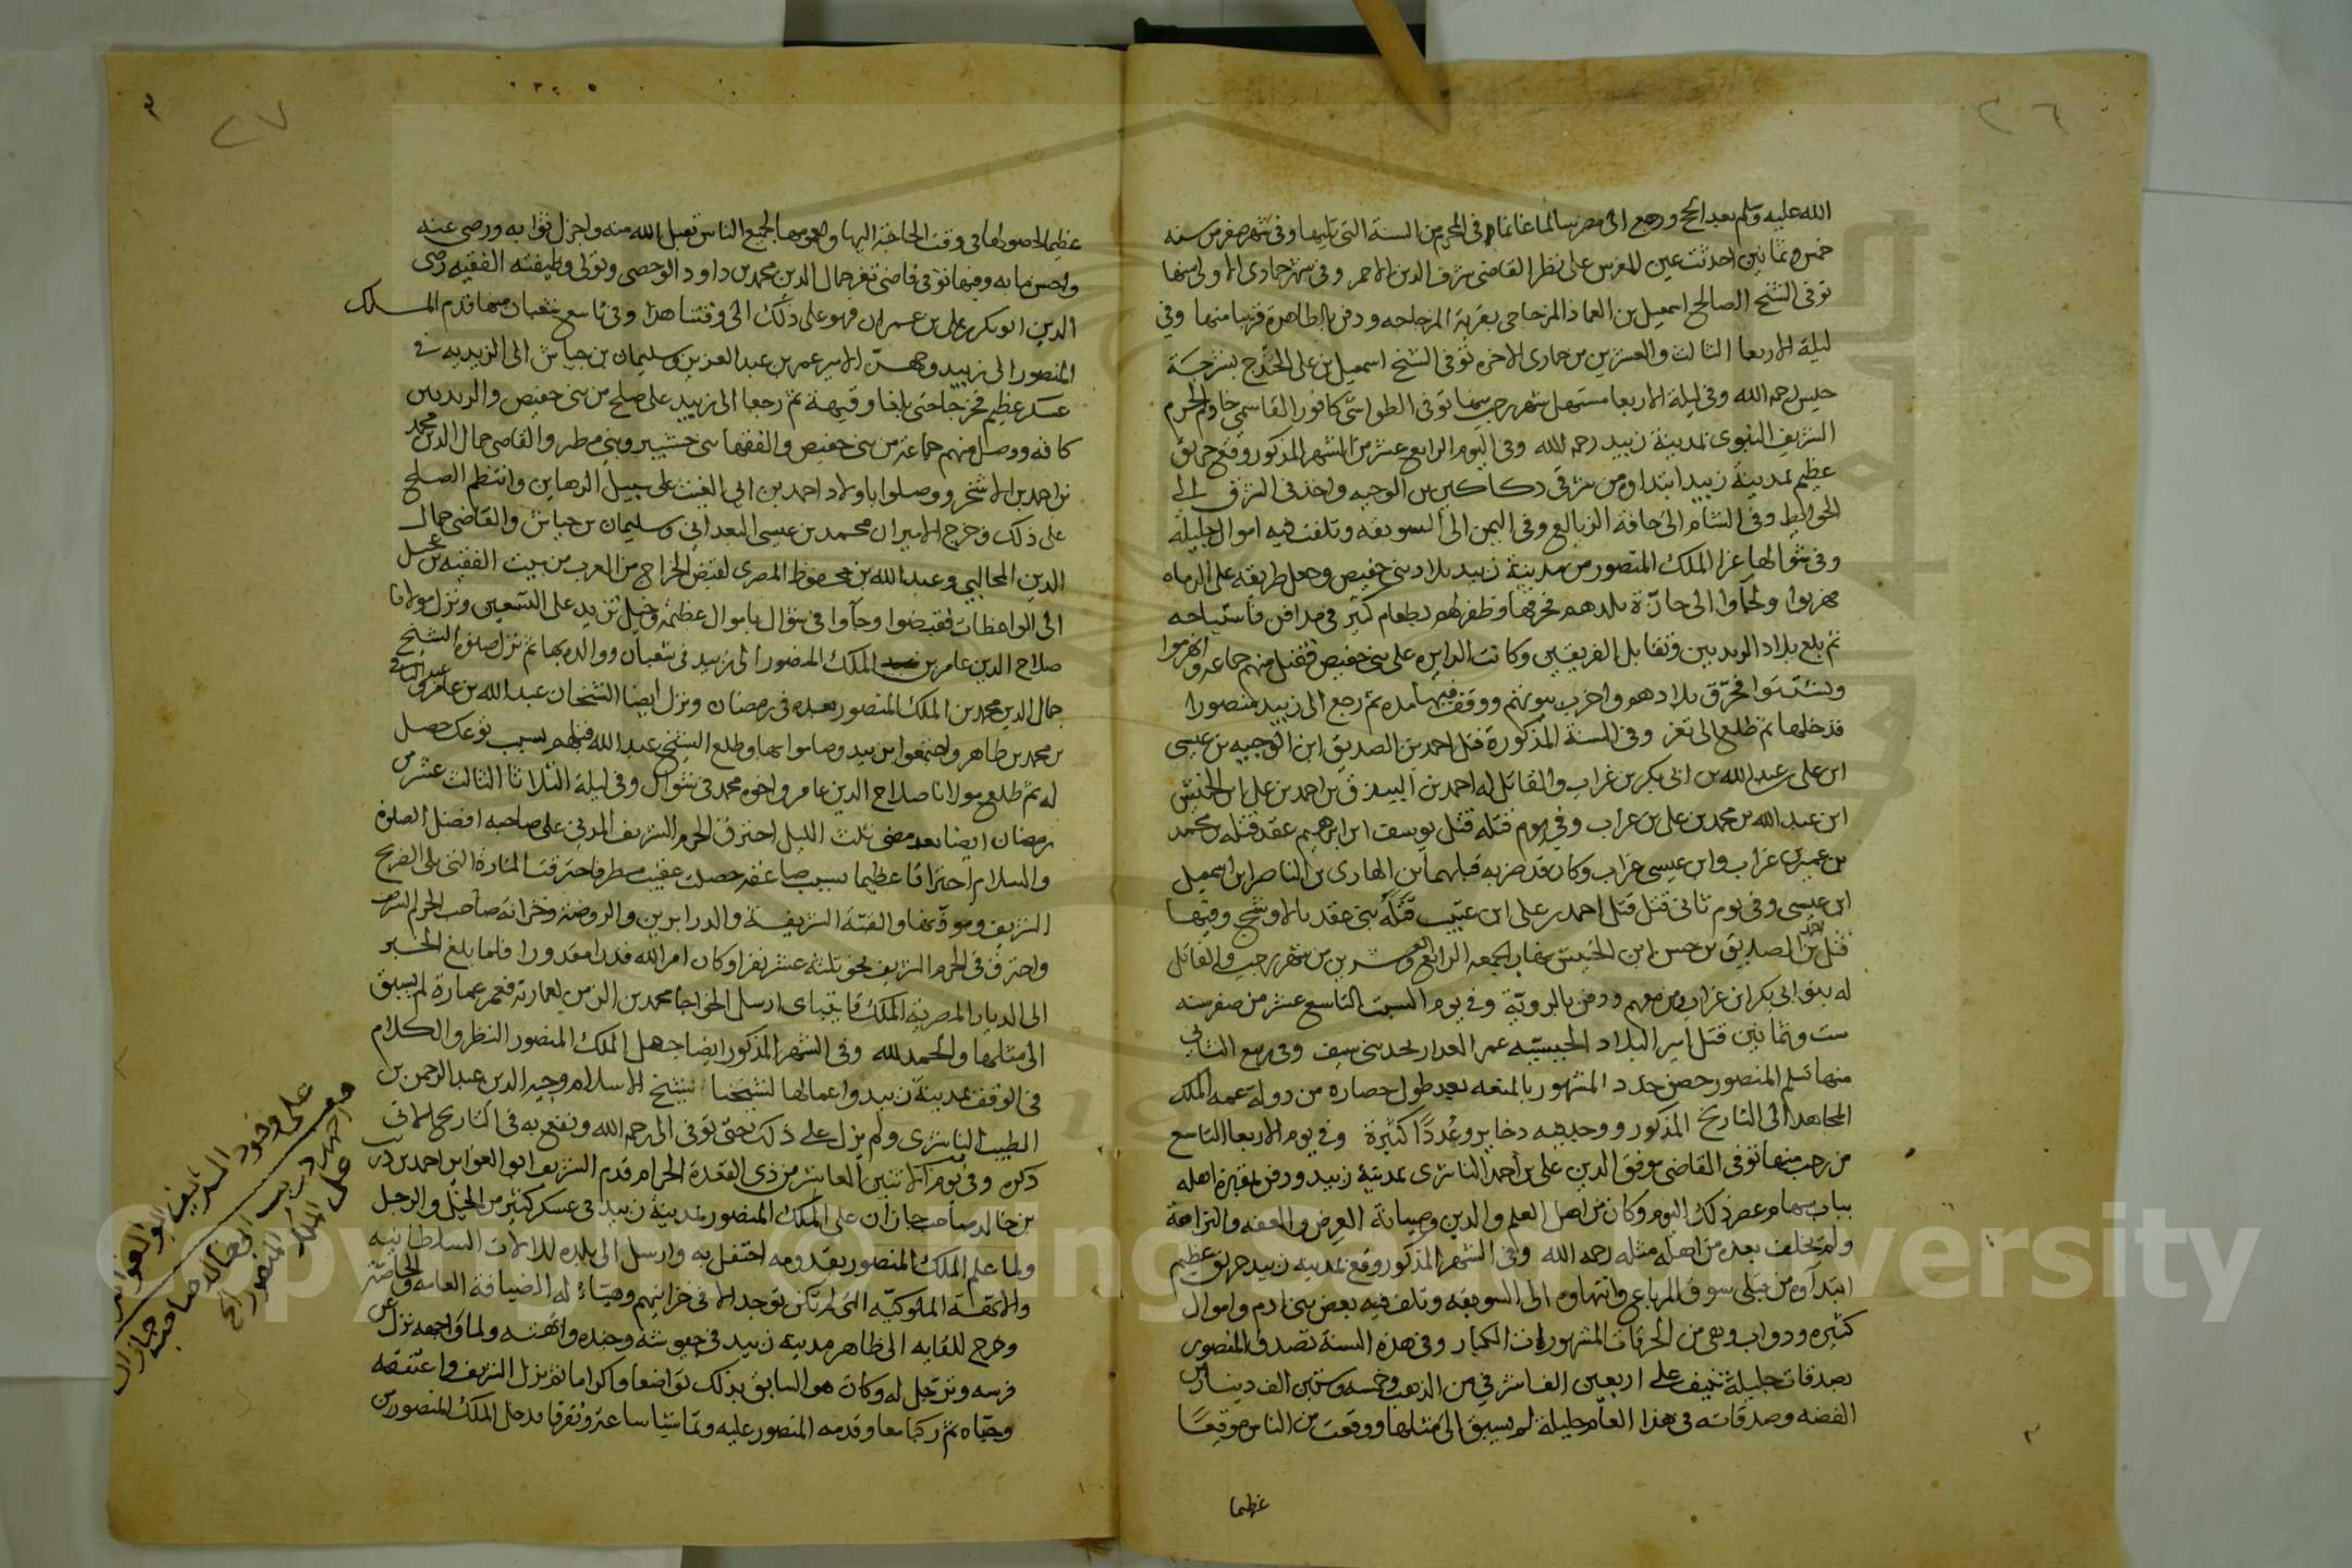 ٢٦
الله عليه وسلم بعد الحج ورجع الى مصر سالما غانما في المحرم من السنة التي تليها وفي شهر صفر من سنه
خمس وثمانين احدثت عين للغرس على نظر القاضي شرف الدين الاحمر وفي شهر جمادى الاولى منها
توفى الشيخ الصالح اسمعيل بن العماد المزجاجي بقرية المزجاجه ودفن بالطاهرة قريبا منها وفي
ليلة الاربعا الثالث والعشرين من جمادى الاخره توفى الشيخ اسمعيل بن على بشرجة
حيس رحمه الله وفي ليلة الاربعا مستهل شهر رجب منها توفى الطواشي كافور القاسمي خادم الحرم
الشريف النبوى بمدينة زبيد رحمه الله وفي اليوم الرابع عشر من الشهر المذكور وقع حريق
عظيم بمدينة زبيد ابتداوه من شرقي دكاكين بن الوجيه واخذ في الشرق الى
الحوايط وفي الشام الى حافة الزيالع وفي اليمن الى السويقه وتلفت فيه اموال جليله
وفي شوالها غزا الملك المنصور من مدينة زبيد بلاد بني حفيص وجعل طريقه على الرماه
فهربوا ولجاوا الى حازة بلدهم فحرقها وظفر لهم بطعام كثير في مدافن فاستباحه
ثم بلغ بلاد الزيديين وتقابل الفريقين وكانت الدايره على بني حفيص فقتل منهم جماعه وانهزموا
وتشتتوا فحرّق بلادهم واخرب بيوتهم ووقف فيها مده ثم رجع الى زبيد منصورا
فدخلها ثم طلع الى تعز وفي السنة المذكورة قتل احمد بن الصديق ابن الوجيه بن عيسى
ابن على بن عبد الله بن ابى بكر بن غراب والقاتل له احمد بن بن احمد بن على ابن الحنبش
ابن عبد الله بن محمد بن على بن غراب وفي يوم قتله قتل يوسف ابن ابراهيم عقد قتله بن محمد
بن عمير بن غراب وابن عيسى غراب وكان قد ضربه قبلهما ابن الهادى بن الناصر ابن اسمعيل
ابن عيسى وفي يوم ثانى قتل قتل احمد بن على ابن قتله بني عقد وفيها
قتل بن الصديق بن حسن ابن الحنبش نهار الجمعه الرابع وعشرين من شهر رجب والقاتل
له بنو ابى بكر ابن غراب ومن معهم ودفن بالرويّة وفي يوم السبت التاسع عشر من صفر سنه
ست وثمانين قتل امير البلاد عمر وفي ربيع الثاني
منها تسلم المنصور حصن حدد المشهور بالمنعه بعد طول حصاره من دولة عمه الملك
المجاهد الى التاريخ المذكور ووجد فيه دخاير وعُددًا كثيرة وفي يوم الاربعا التاسع
من رجب منها توفى القاضي موفق الدين على بن احمد الناشرى بمدينة زبيد ودفن بمقبرة اهله
بباب سهام عصر ذلك اليوم وكان من اهل العلم والدين وصيانة العرض والعفه والنزاهة
ولم يخلف بعده من اهله مثله رحمه الله وفي الشهر المذكور وقع بمدينه زبيد حريق عظيم
ابتداوه من قبلى سوق المرباع وانتهاوه الى السويقه وتلف فيه بعض بني ادم واموال
كثيره ودواب وهي من الحرقات المشهورات الكبار وفي هذه السنة تصدق المنصور
بصدقات جليلة تنيف على اربعين الف اشرفي من الذهب وخمسه وستين الف دينار من
الفضه وصدقاته في هذا العام جليلة لم يسبق الى مثلها ووقعت من الناس موقعًا
عظيما
٢٧
عظيما لحصولها في وقت الحاجة اليها وعمومها لجميع الناس تقبل الله منه واجزل ثوابه ورضي عنه
واحسن مابه وفيها توفى قاضي تعز جمال الدين محمد بن داود الوحصي وتولى وظيفته الفقيه رضى
الدين ابو بكر بن على بن عمران فهو على ذلك الى وقتنا هذا وفي تاسع شعبان منها قدم الملك
المنصور الى زبيد وجهّز الامير عمر بن عبد العزيز وسليمان بن جياش الى الزيديه في
عسكر عظيم فخرجا حتى بلغا ثم رجعا الى زبيد على صلح من بني حفيص والزيديين
كافه ووصل منهم جماعة من بني حفيص والفقها بني حشيبر وبني مطير والقاضي جمال الدين محمد
بن احمد بن الاشخر ووصلوا باولاد احمد بن ابى الغيث على سبيل الرهاين وانتظم الصلح
على ذلك وخرج الاميران محمد بن عيسى البعدانى وسليمان بن جياش والقاضي جمال
الدين المحالبي وعبد الله بن محفوظ المصرى لقبض الخراج من العرب من بيت الفقيه بن عجيل
الى الواعظات فقبضوا وجاوا في شوال باموال عظيمة وخيل تزيد على التسعين ونزل مولانا
صلاح الدين عامر بن الملك المنصور الى زبيد في شعبان ووالده بها ثم نزل صنوه الشيخ
جمال الدين محمد بن الملك المنصور بعده في رمضان ونزل ايضا الشيخان عبد الله بن عامر وعبد الباقي
بن محمد بن طاهر واجتمعوا بزبيد وصاموا بها وطلع الشيخ عبد الله قبلهم بسبب توعك حصل
له ثم طلع مولانا صلاح الدين عامر واخوه محمد في شوال وفي ليلة الثلاثا الثالث عشر من
رمضان ايضا بعد مضى ثلث الليل احترق الحرم الشريف المدني على صاحبه افضل الصلوة
والسلام احتراقا عظيما بسبب صاعقه حصلت عقيب مطر فاحترقت المنارة التي تلى الضريح
الشريف وموذنها والقبّة الشريفة والدرابزين والروضة وخزانة صاحب الحرم الشريف
واحترق في الحرم الشريف نحو ثلثة عشر نفرا وكان امر الله قدرا مقدورا فلما بلغ الخبر
الى الديار المصرية الملك قايتباى ارسل الخواجا محمد بن الزمن لعمارته فعمر عمارة لم يسبق
الى مثلها والحمد لله وفي الشهر المذكور ايضا جعل الملك المنصور النظر والكلام
في الوقف بمدينة زبيد واعمالها لشيخنا شيخ الاسلام وجيه الدين عبد الرحمن بن
الطيب الناشرى ولم يزل على ذلك حتى توفى الى رحمة الله ونفع به في التاريخ الاتى
ذكره وفي يوم الاثنين العاشر من ذى القعدة الحرام قدم الشريف ابو الغواير احمد بن دريب
بن خالد صاحب جازان على الملك المنصور بمدينة زبيد في عسكر كثير من الخيل والرجل
ولما علم الملك المنصور بقدومه احتفل به وارسل الى بلده للالات السلطانيه
والامتعة الملوكيّه التى لم تكن توجد الا في خزاينهم وهيّا له الضيافة العامه والخاصّة
وخرج للقايه الى ظاهر مدينة زبيد في جيوشه وجنده وابّهته ولما واجهه نزل عن
فرسه وترجّل له وكان هو السابق بذلك تواضعا واكراما ثم نزل الشريف واعتنقه
وحيّاه ثم ركبا معا وقدمه المنصور عليه وتماشيا ساعة وتفرقا فدخل الملك المنصور من
على وفود الشريف ابو الغواير
احمد بن دريب ابن خالد صاحب جازان
على الملك المنصور